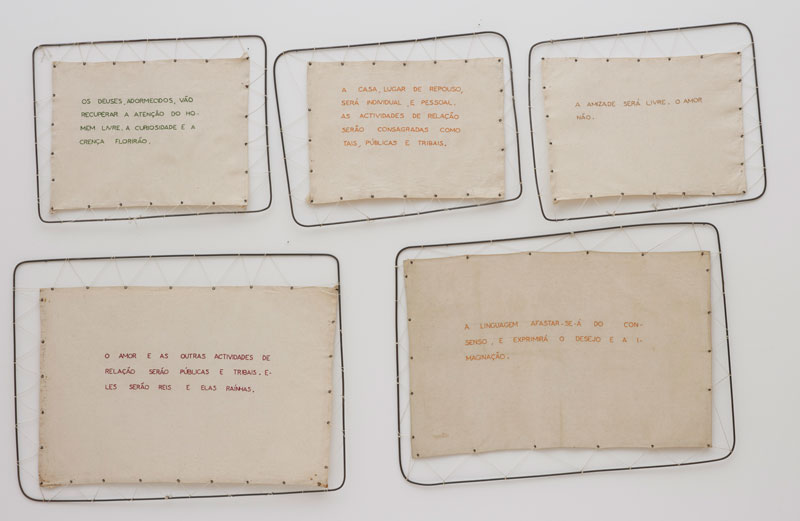 OS DEUSES, ADORMECIDOS, VÃO
RECUPERAR A ATENÇÃO DO HO-
MEM LIVRE. A CURIOSIDADE E A
CRENÇA FLORIRÃO.
A CASA, LUGAR DE REPOUSO,
SERÁ INDIVIDUAL E PESSOAL.
AS ACTIVIDADES DE RELAÇÃO
SERÃO CONSAGRADAS COMO
TAIS, PÚBLICAS E TRIBAIS.
A AMIZADE SERÁ LIVRE. O AMOR
NÃO.
O AMOR E AS OUTRAS ACTIVIDADES DE
RELAÇÃO SERÃO PÚBLICAS E TRIBAIS. E-
LES SERÃO REIS E ELAS RAÍNHAS.
A LINGUAGEM AFASTAR-SE-Á DO CON-
SENSO, E EXPRIMIRÁ O DESEJO E A I-
MAGINAÇÃO.